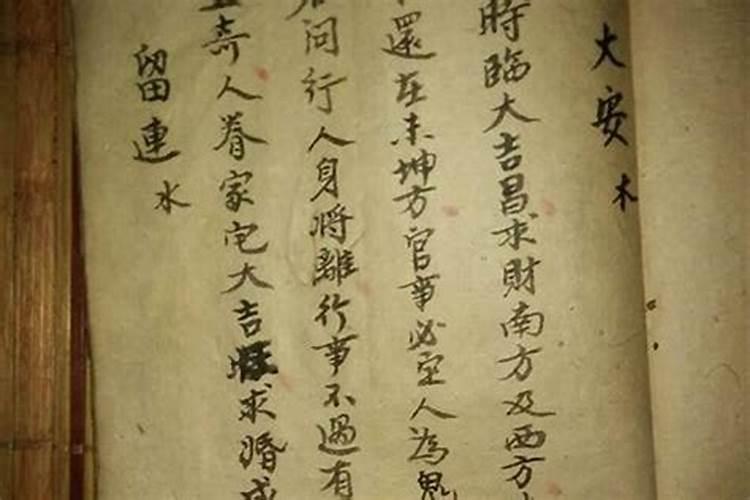 大安 木
時臨大吉昌求財南方及西方
還在未坤方官事必定人為鬼
問行人身將離行事不過有
奇人眷家宅大吉旺求婚成
留連 水